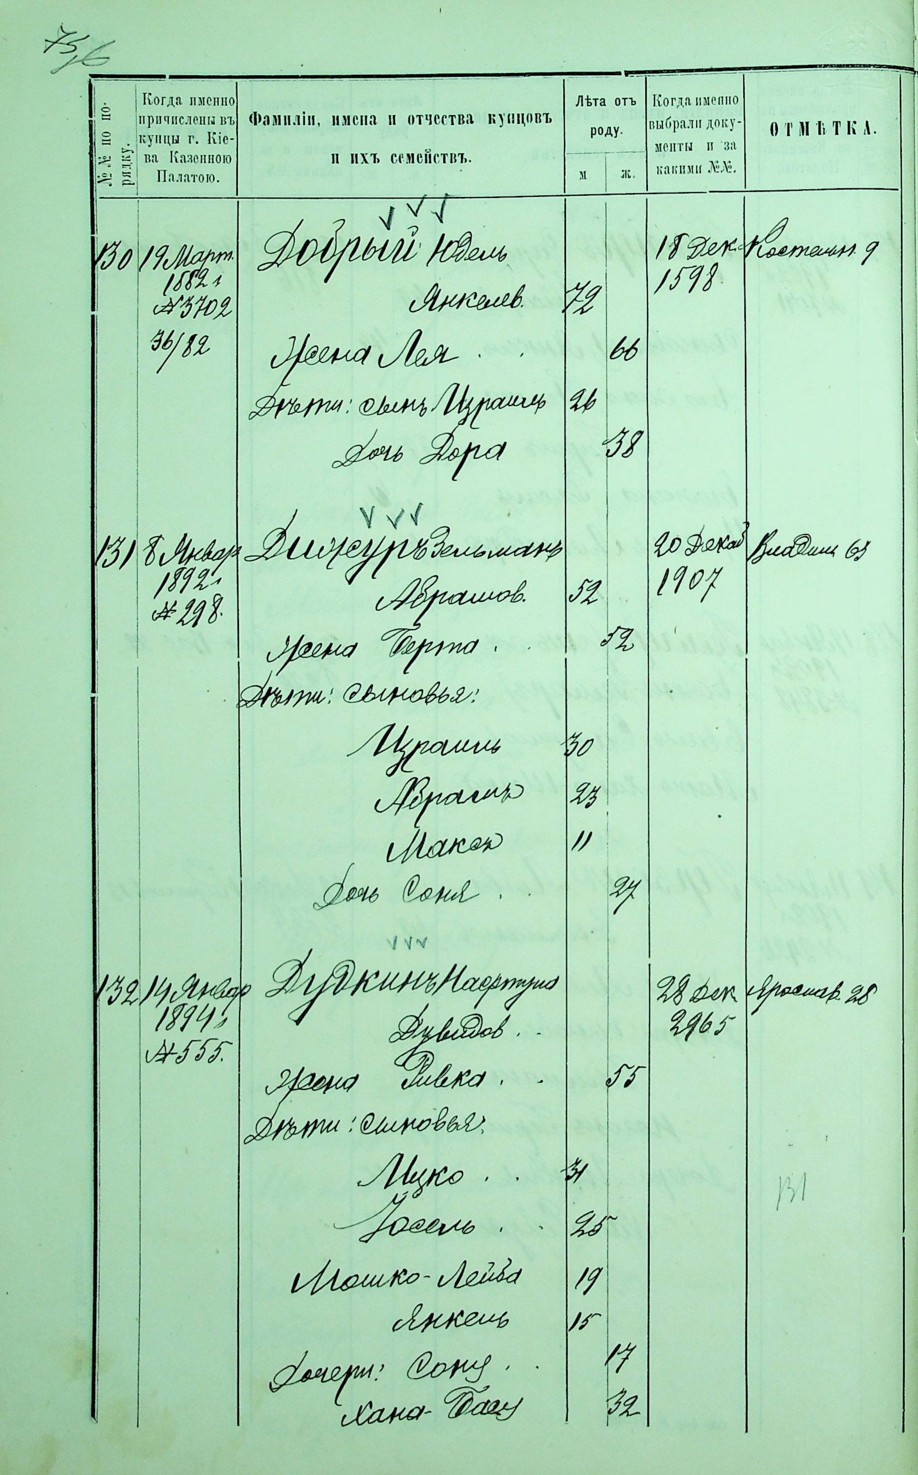 75
76
№№ по по-
рядку.
Когда именно
причислены въ
купцы г. Кіе-
ва Казенною
Палатою.
Фамиліи, имена и отчества купцовъ
и ихъ семействъ.
Лѣта отъ
роду.
м
ж.
Когда именно
выбрали доку-
менты и за
какими №№.
ОТМѢТКА.
130 19 Март. Добрый Юдель 18 Дек Костельн. 9
1882 г Янкелев. 72 1598
№ 3702
36/82 Жена Лея . . 66
Дѣти: сынъ Израиль 26
Дочь Дора 38
131 8 Январ Зельманъ 20 Декаб 63
1892 г Абрамов. 52 1907
№ 298.
Жена Берта . . 52
Дѣти: сыновья:
Израиль 30
Абрамъ 23
Макса 11
Дочь Соня . . 27
132 14 Январ Дудкинъ Нафтула 28 Дек Ярослав. 28
1894 г Дувидов . . 2965
№ 555.
Жена Ривка . . 55
Дѣти: сыновья:
Ицко . . 31
Іосель . . 25
Мошко-Лейба 19
Янкель 15
131
Дочери: Соня . . 17
Хана- 32